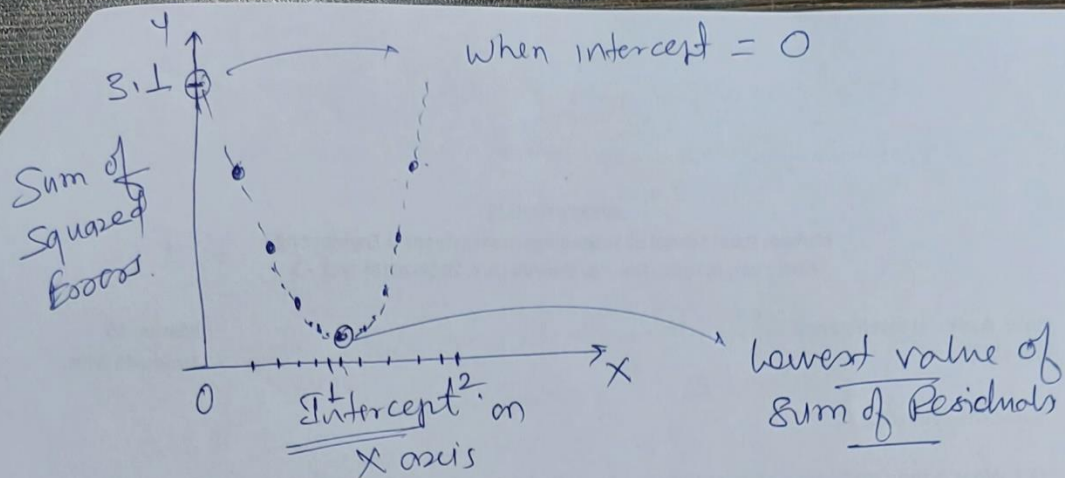 Y
When intercept = 0
3.1
Sum of
Squared
Errors.
0
1
2
X
Intercept on
X axis
Lowest value of
Sum of Residuals